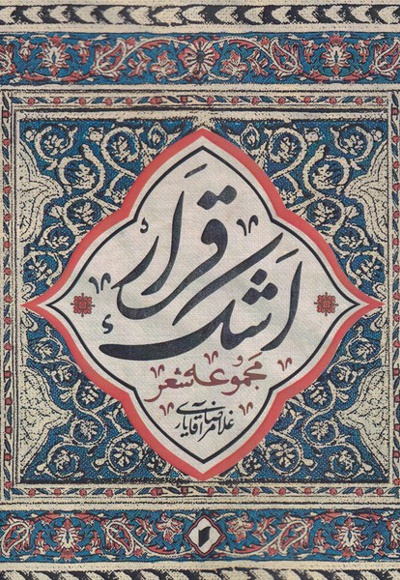 اشک قرار
مجموعه شعر
غلامرضا آقایاری